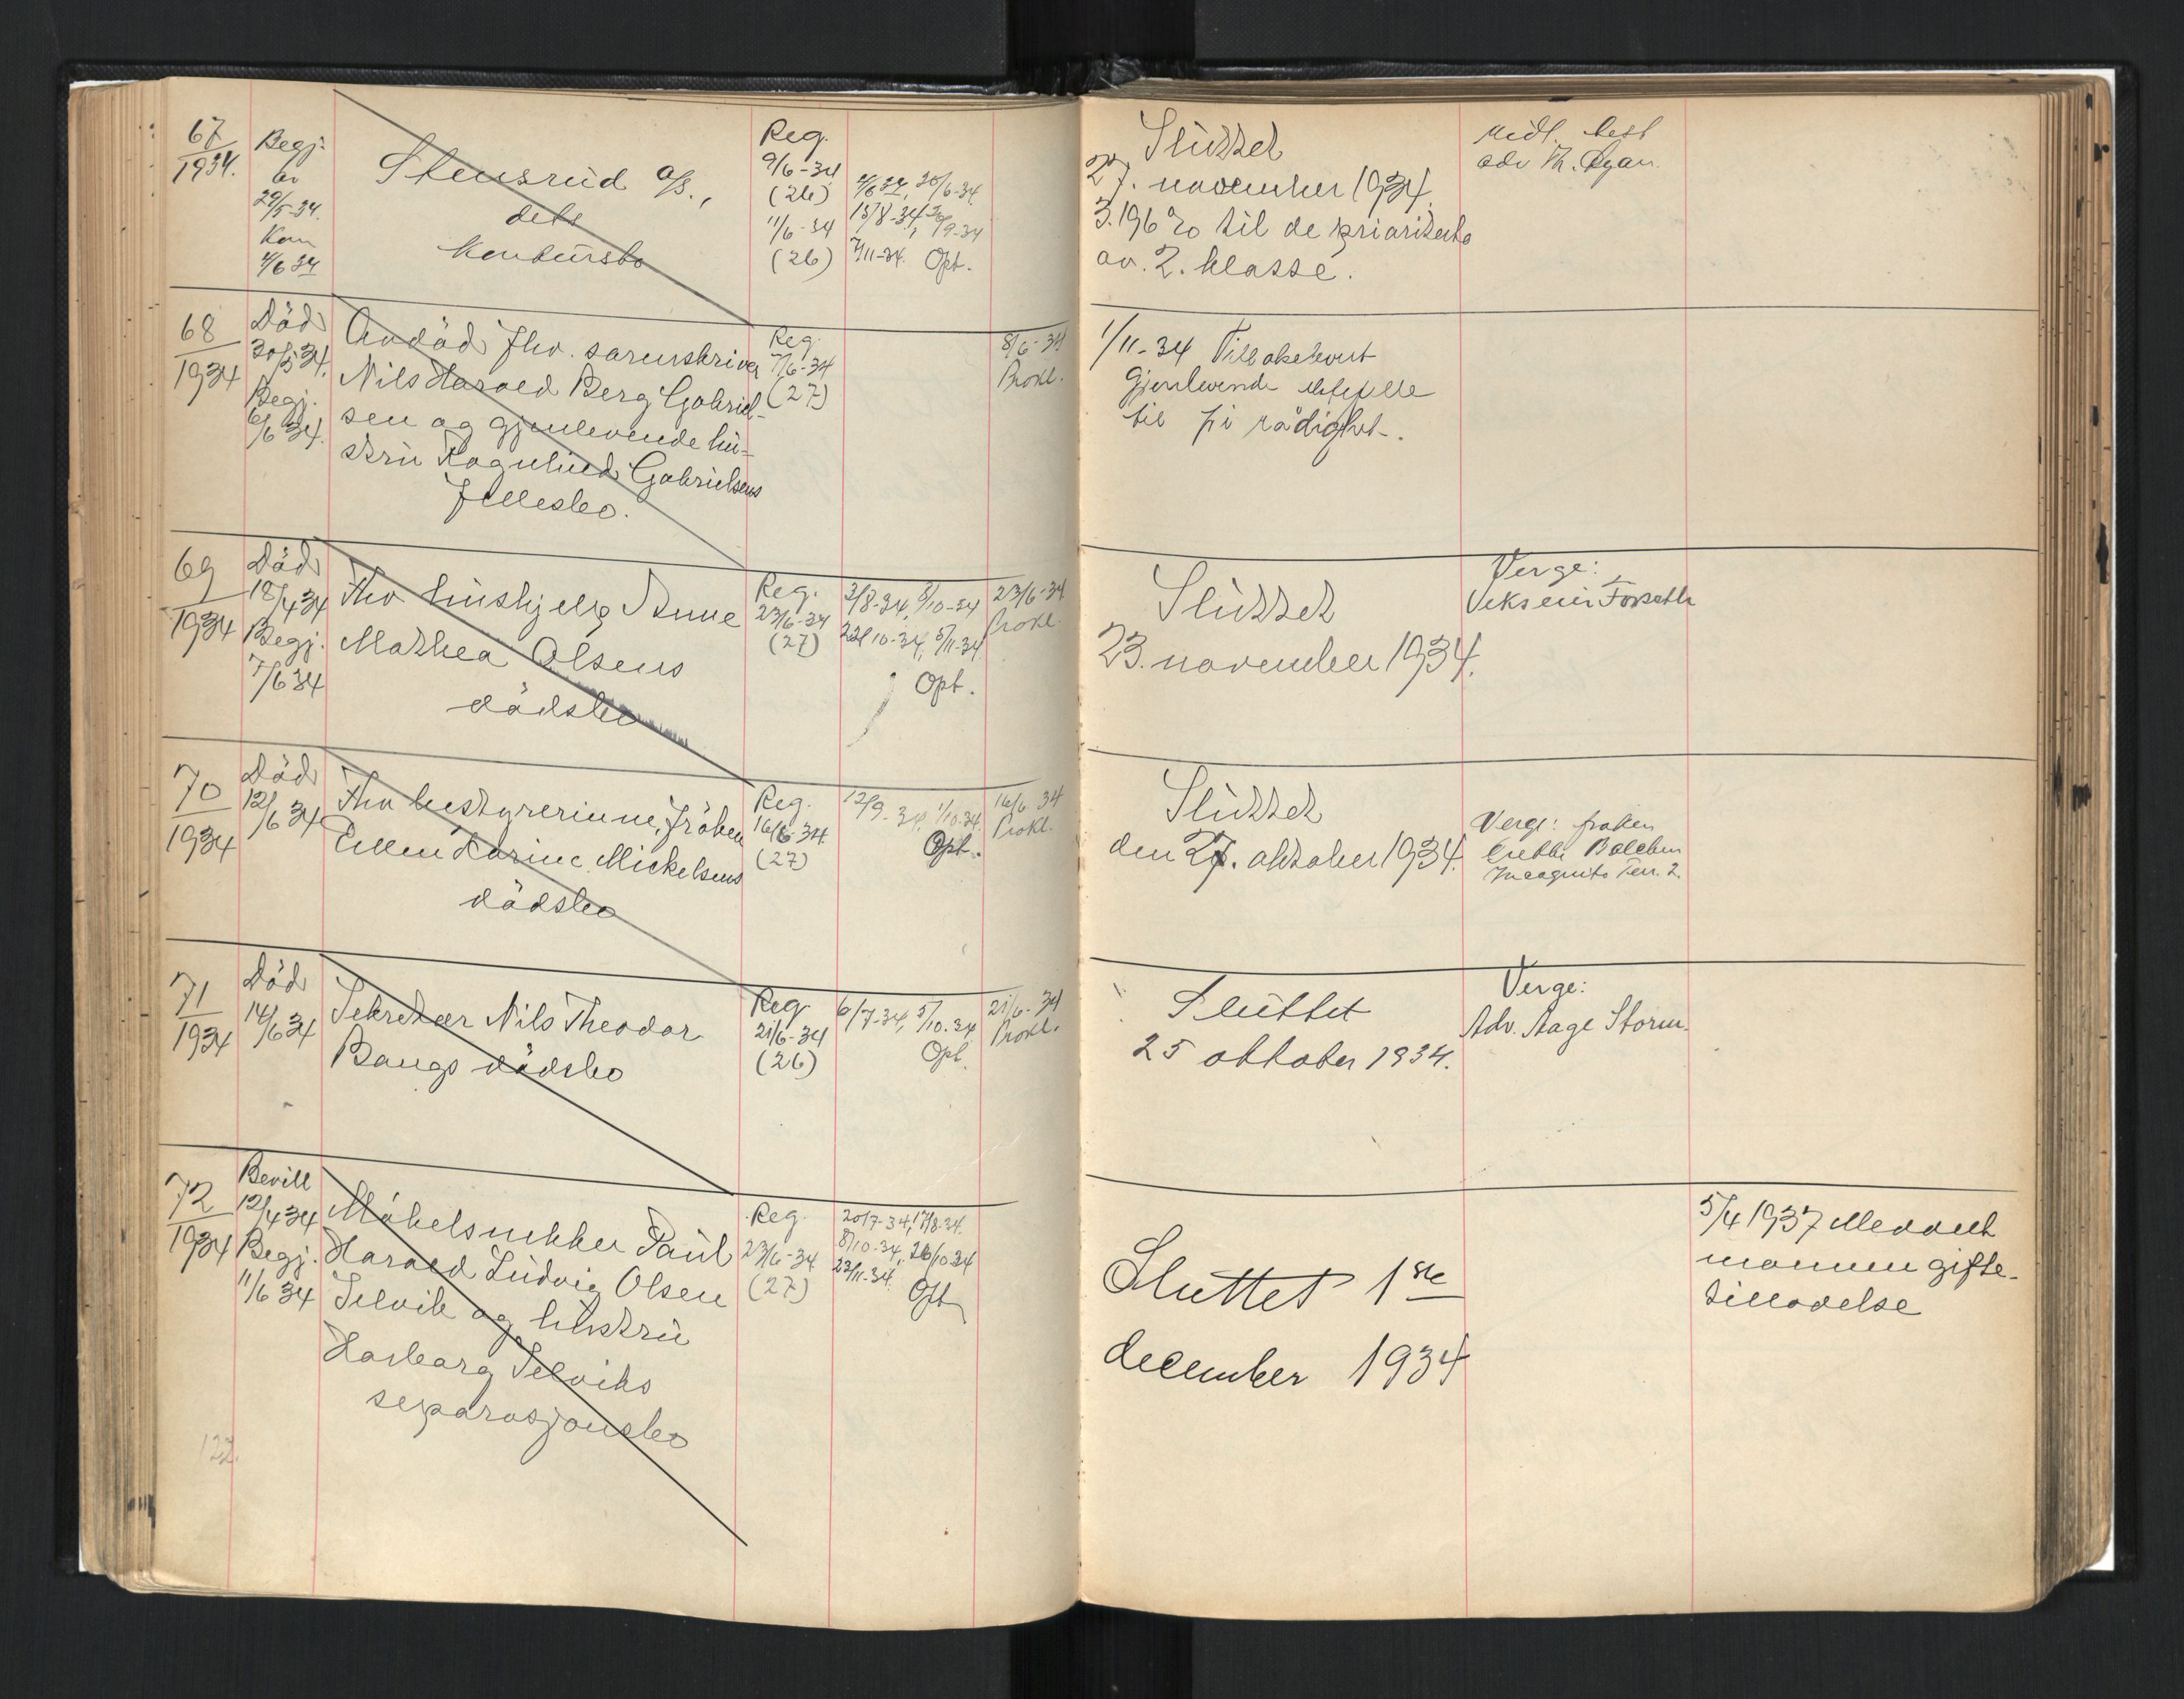 67
1934.
Begj.
av
29/5-34.
Kon
4/6 34
Stensrud a/s.,
dets
konkursbo
Reg.
9/6-34
(26)
11/6-34
(26)
4/6 34, 20/6-34
15/8-34, 20/9-34
7/11-34. Opt.
Sluttet
27. november 1934.
3.196 % til de prioriterte
av 2. klasse.
midl. best
adv Th.
68
1934
Död
30/5 34.
Begj.
6/6 34.
Avdöd fhv. sorenskriver
Nils Harald Berg Gabriel-
sen og gjenlevende hu-
stru Ragnhild Gabrielsens
fellesbo.
Reg.
7/6-34
(27)
8/6-34
Prokl.
1/11-34 Tilbakelevert
gjenlevende ektefelle
til fri rådighet.
69
1934
Död
18/4 34
Begj.
7/6 34
Fhv hushjelp Anne
Mathea Olsens
dödsbo
Reg.
23/6-34
(27)
3/8-34, 8/10-34
22/10-34, 5/11-34
Opt.
23/6-34
Prokl.
Sluttet
23. november 1934.
Verge:
Forseth
70
1934
Död
12/6 34
Fhv bestyrerinne, fröken
Ellen Karine Mickelsens
dödsbo
Reg.
16/6-34
(27)
12/9-34, 1/10-34.
Opt.
16/6 34
Prokl.
Sluttet
den 27. oktober 1934.
Verge: frøken
Balchen
Incognito Terr. 2.
71
1934
Död
14/6 34
Sekretær Nils Theodor
Bangs dödsbo
Reg
21/6-34
(26)
6/7-34, 5/10-34
Opt.
21/6-34
Prokl.
Sluttet
25 oktober 1934.
Verge:
Adv. Aage Storm.
72
1934
Bevill
12/4 34
Begj.
11/6 34
Möbelsnekker Paul
Harald Ludvig Olsen
Selvik og hustru
Harbarg Selviks
separasjonsbo
Reg.
23/6-34
(27)
20/7-34, 17/8-34.
8/10-34, 26/10-34
23/11-34.
Opt
Sluttet 1ste
december 1934
5/4 1937 Meddelt
mannen gifte-
tillatelse
122.